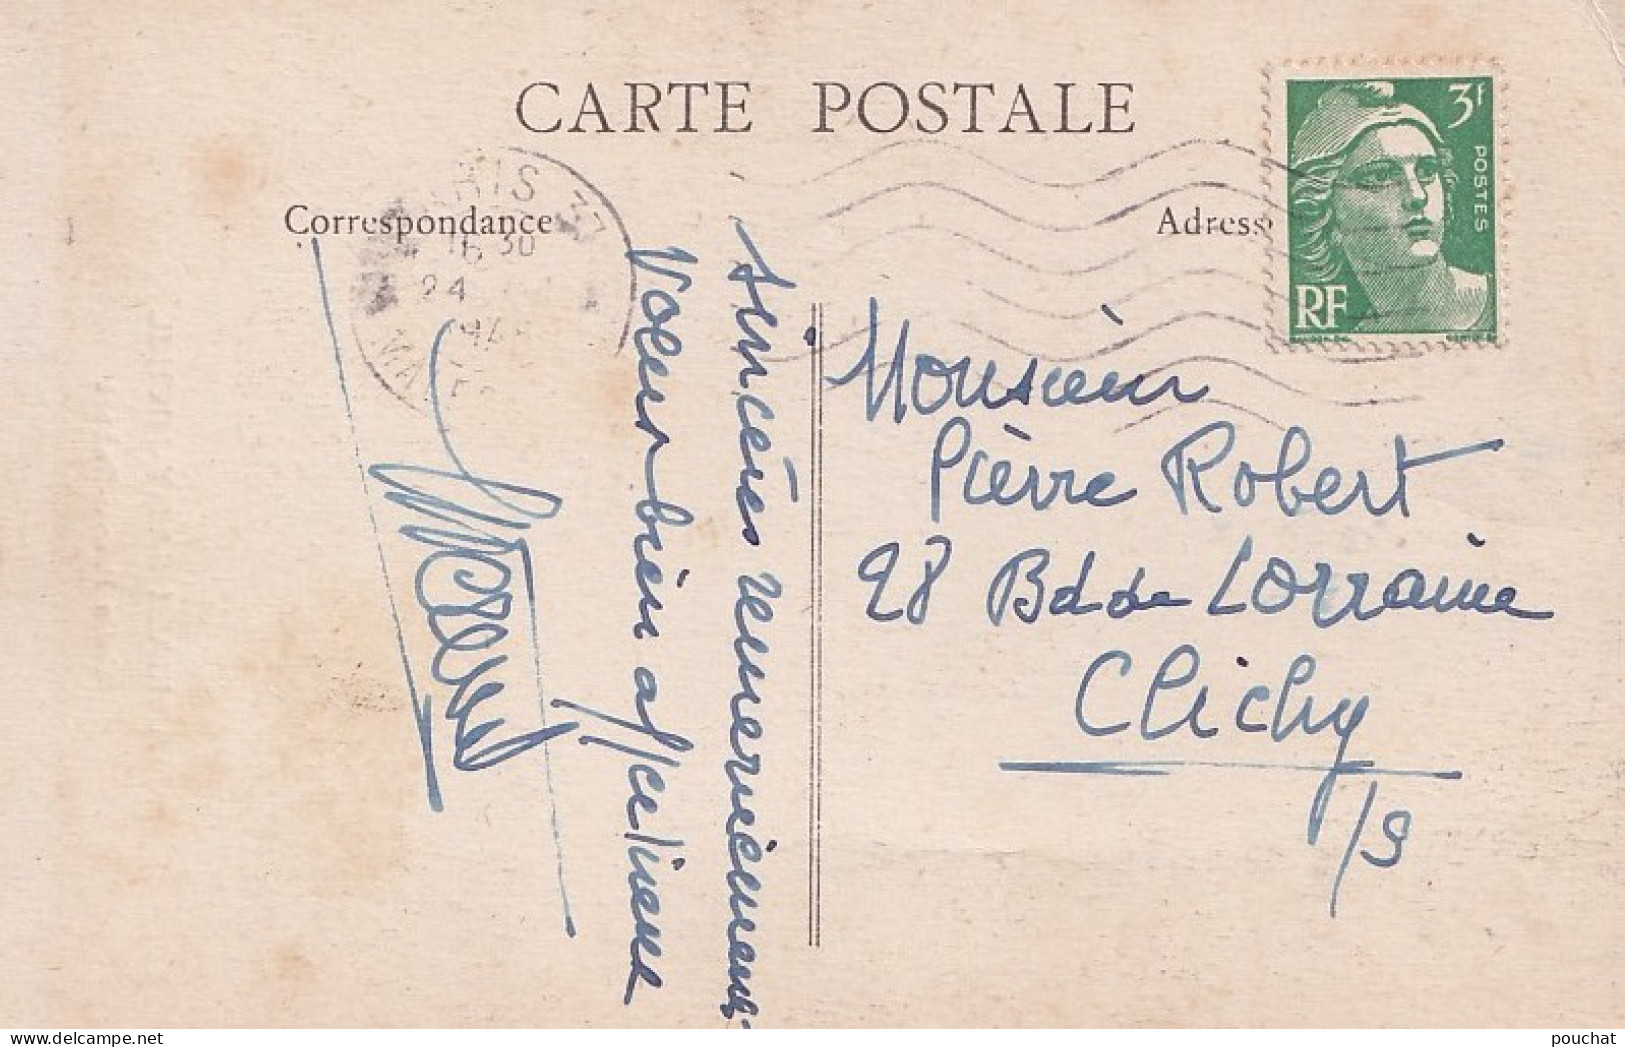 CARTE POSTALE
Correspondance
Adress
3F
POSTES
RF
PARIS 37
16 30
24
Sincères remerciements
Votre bien affectionné
Monsieur
Pierre Robert
28 Bd de Lorraine
Clichy
/S
pouchat